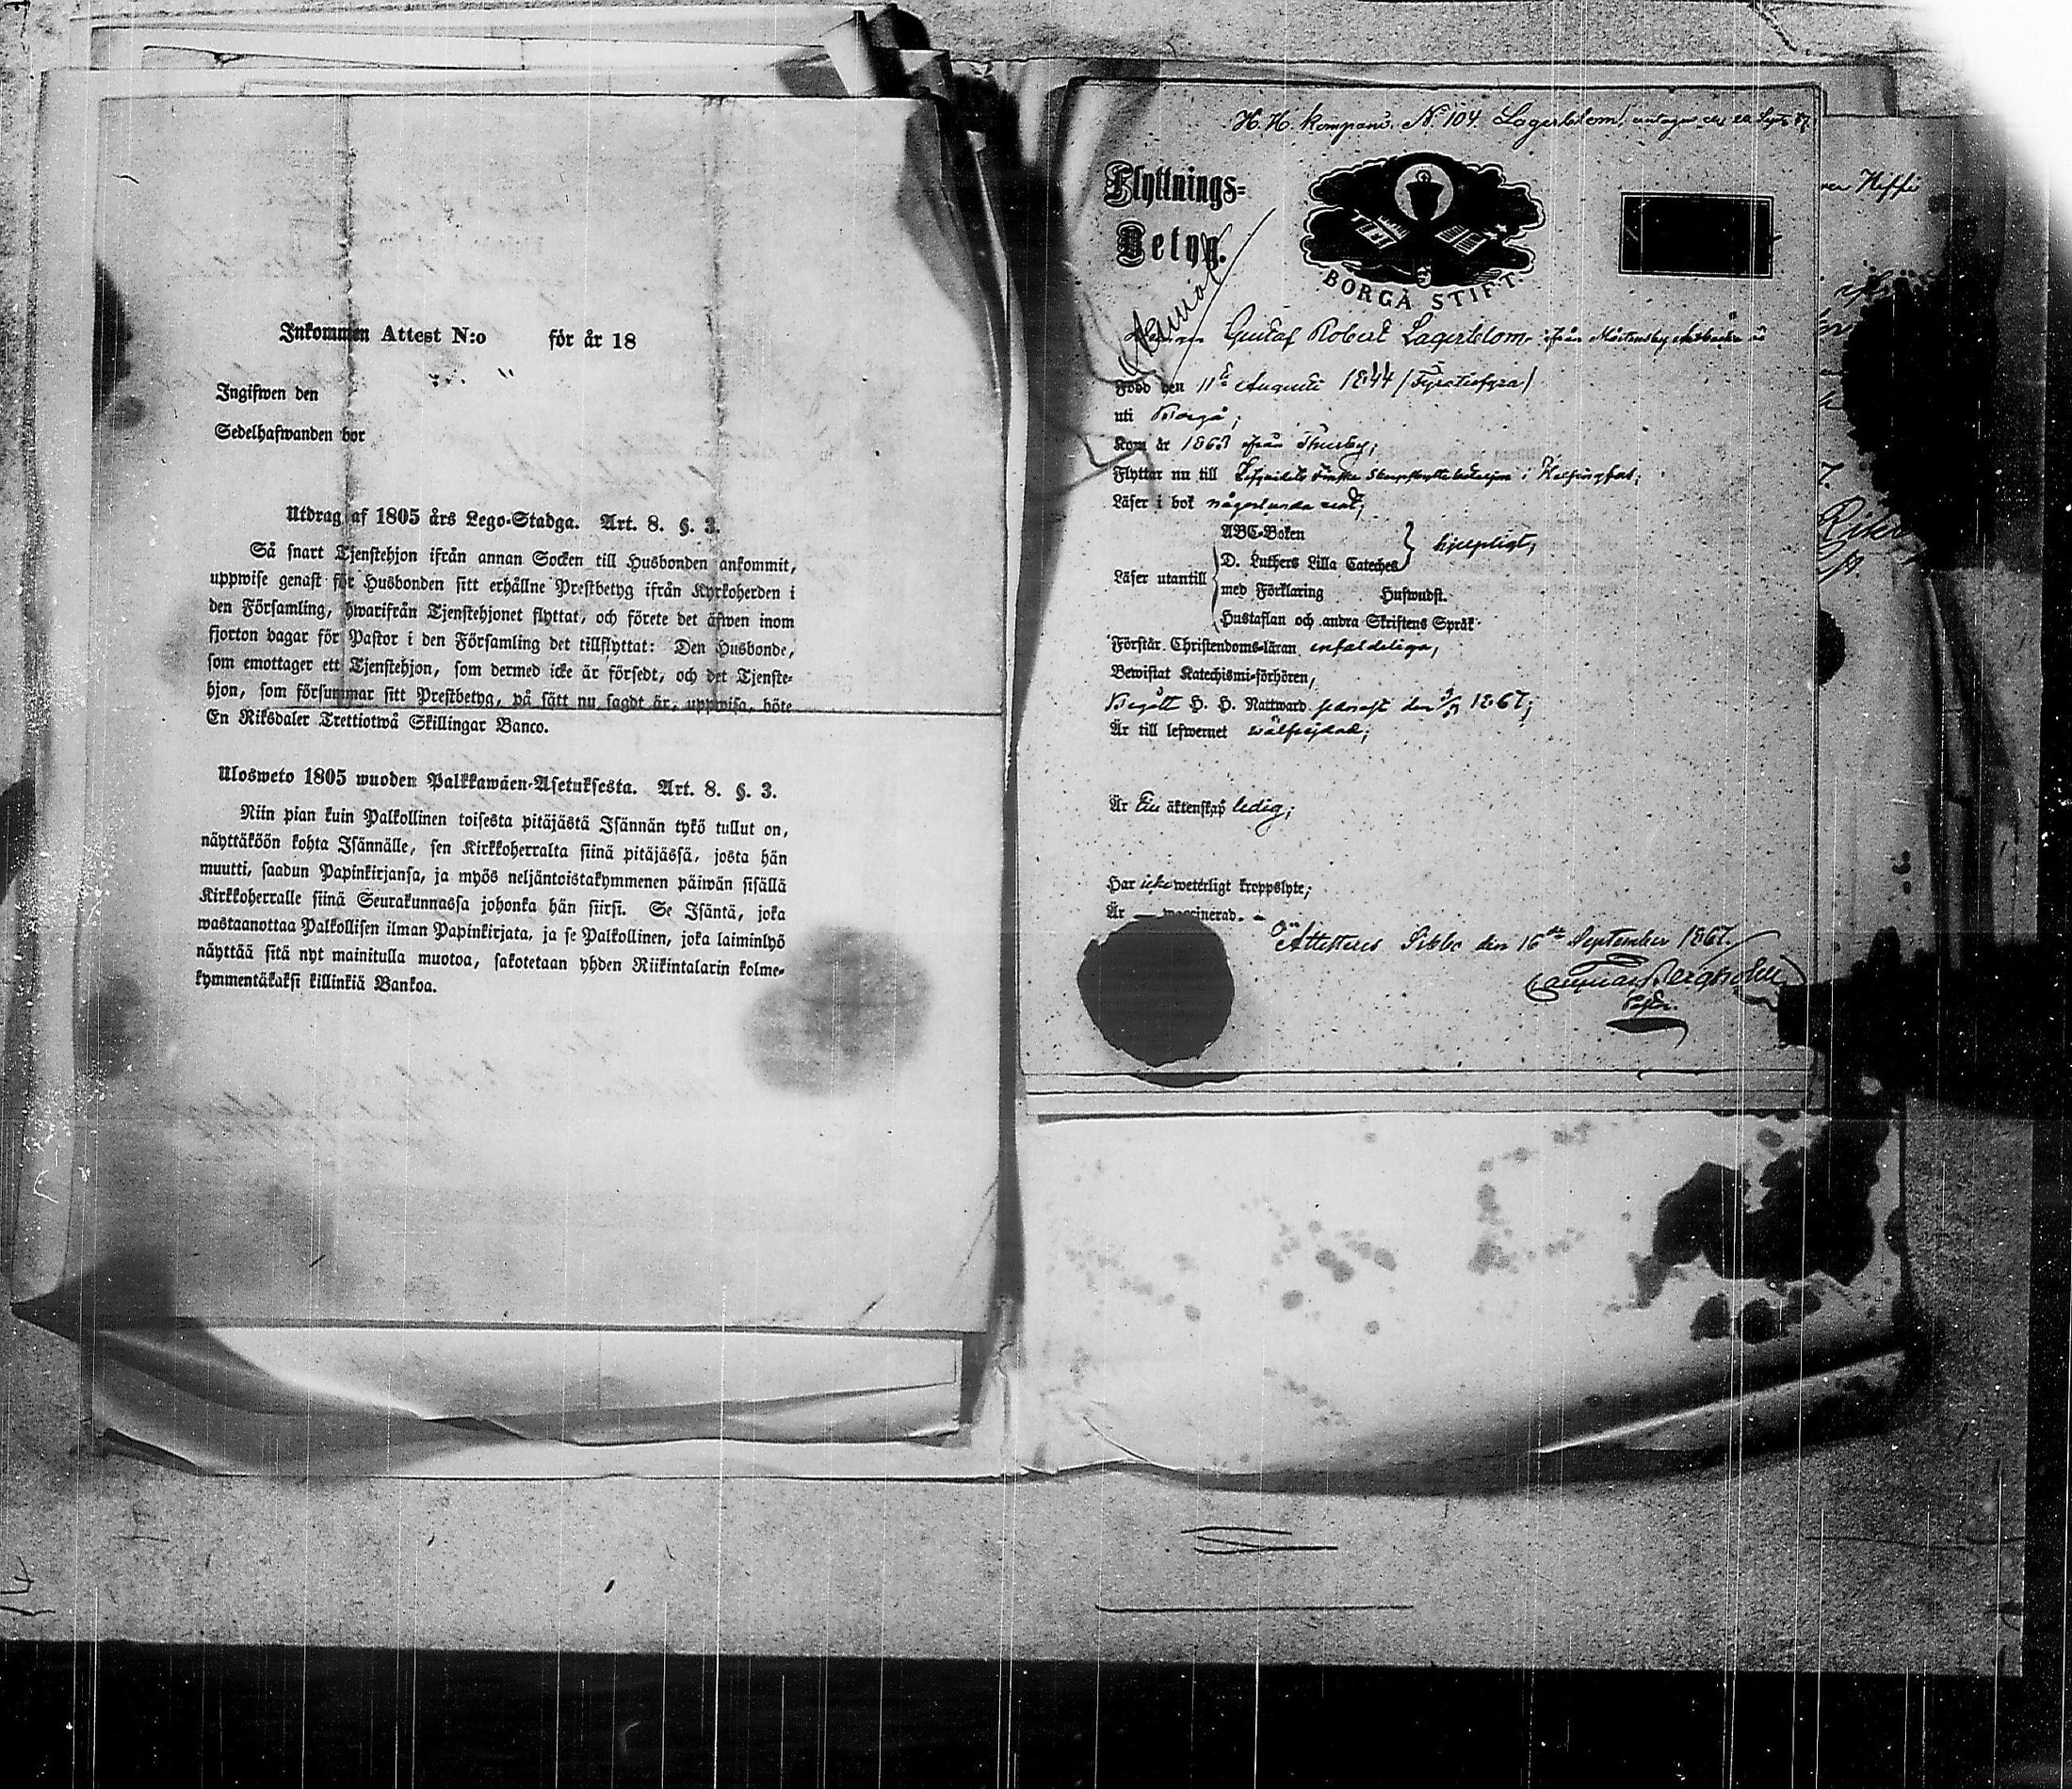 Inkommen Attest N:o för år 18
Ingifwen den
Sedelhafwanden bor
Utdrag af 1805 års Lego-Stadga. Art. 8. §. 3.
Så snart Tjenstehjon ifrån annan Socken till Husbonden ankommit,
uppwise genast för Husbonden sitt erhållne Prestbetyg ifrån Kyrkoherden i
den Församling, hwarifrån Tjenstehjonet flyttat, och förete det äfwen inom
fjorton dagar för Pastor i den Församling det tillflyttat: Den Husbonde,
som emottager ett Tjenstehjon, som dermed icke är försedt, och det Tjenste-
hjon, som försummar sitt Prestbetyg, på sätt nu sagdt är, uppwisa, böte
En Riksdaler Trettiotwå Skillingar Banco.
Ulosweto 1805 wuoden Palkkawäen-Asetuksesta. Art. 8. §. 3.
Niin pian kuin Palkollinen toisesta pitäjästä Isännän tykö tullut on,
näyttäköön kohta Isännälle, sen Kirkkoherralta siinä pitäjässä, josta hän
muutti, saadun Papinkirjansa, ja myös neljäntoistakymmenen päiwän sisällä
Kirkkoherralle siinä Seurakunnassa johonka hän siirsi. Se Isäntä, joka
wastaanottaa Palkollisen ilman Papinkirjata, ja se Palkollinen, joka laiminlyö
näyttää sitä nyt mainitulla muotoa, sakotetaan yhden Riikintalarin kolme-
kymmentäkaksi killinkiä Bankoa.
H. H. Kompani. N. 104 Lagerblom, antagen den Sept. 67
Flyttnings-
Betyg.
BORGÅ STIFT.
Gustaf Robert Lagerblom, ifrån Mårtensby
Född den 11te Augusti 1844 (Fyratiofyra)
uti Borgå;
Kom år 1863 ifrån Thusby;
Flyttar nu till Lifgardets Finska Skarpskyttebataljon i Helsingfors;
Läser i bok någorlunda rent;
ABC-Boken
D. Luthers Lilla Cateches } hjelpligt;
Läser utantill
med Förklaring Hufwudst.
Hustaflan och andra Skriftens Språk
Förstår Christendoms-läran enfaldeliga,
Bewistat Katechismi-förhören,
Begått H. H. Nattward senast den 1867;
Är till lefwernet wälfrejdad;
Är till äktenskap ledig;
Har icke weterligt kroppslyte;
Är — waccinerad. –
Attesteras Sibbo den 16de September 1867.
Pastor.